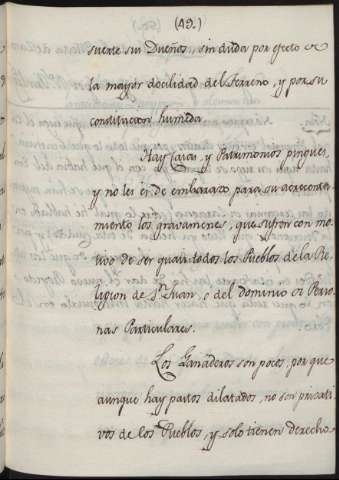 (49.)
suerte sus Dueños, sin duda por efecto de
la mayor docilidad del terreno, y por su
constitucion humeda.
Hay Casas, y Patrimonios pingues,
y no les es de embarazo para su acrecenta
miento los gravamenes, que sufren con mo
tivo de ser quasi todos los Pueblos de la Re
ligion de Sn. Juan, o del dominio de Perso
nas Particulares.
Los Ganaderos son pocos, por que
aunque hay pastos dilatados, no son privati
vos de los Pueblos, y solo tienen derecho